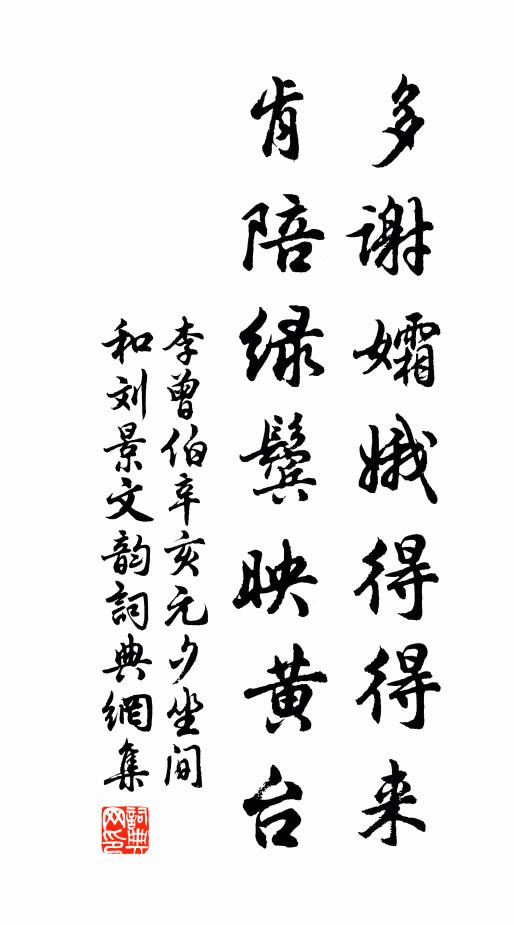 多谢孀娥得得来
肯陪绿鬓映黄台
李曾伯辛亥元夕坐间
和刘景文韵詞典網集
詞典
网印